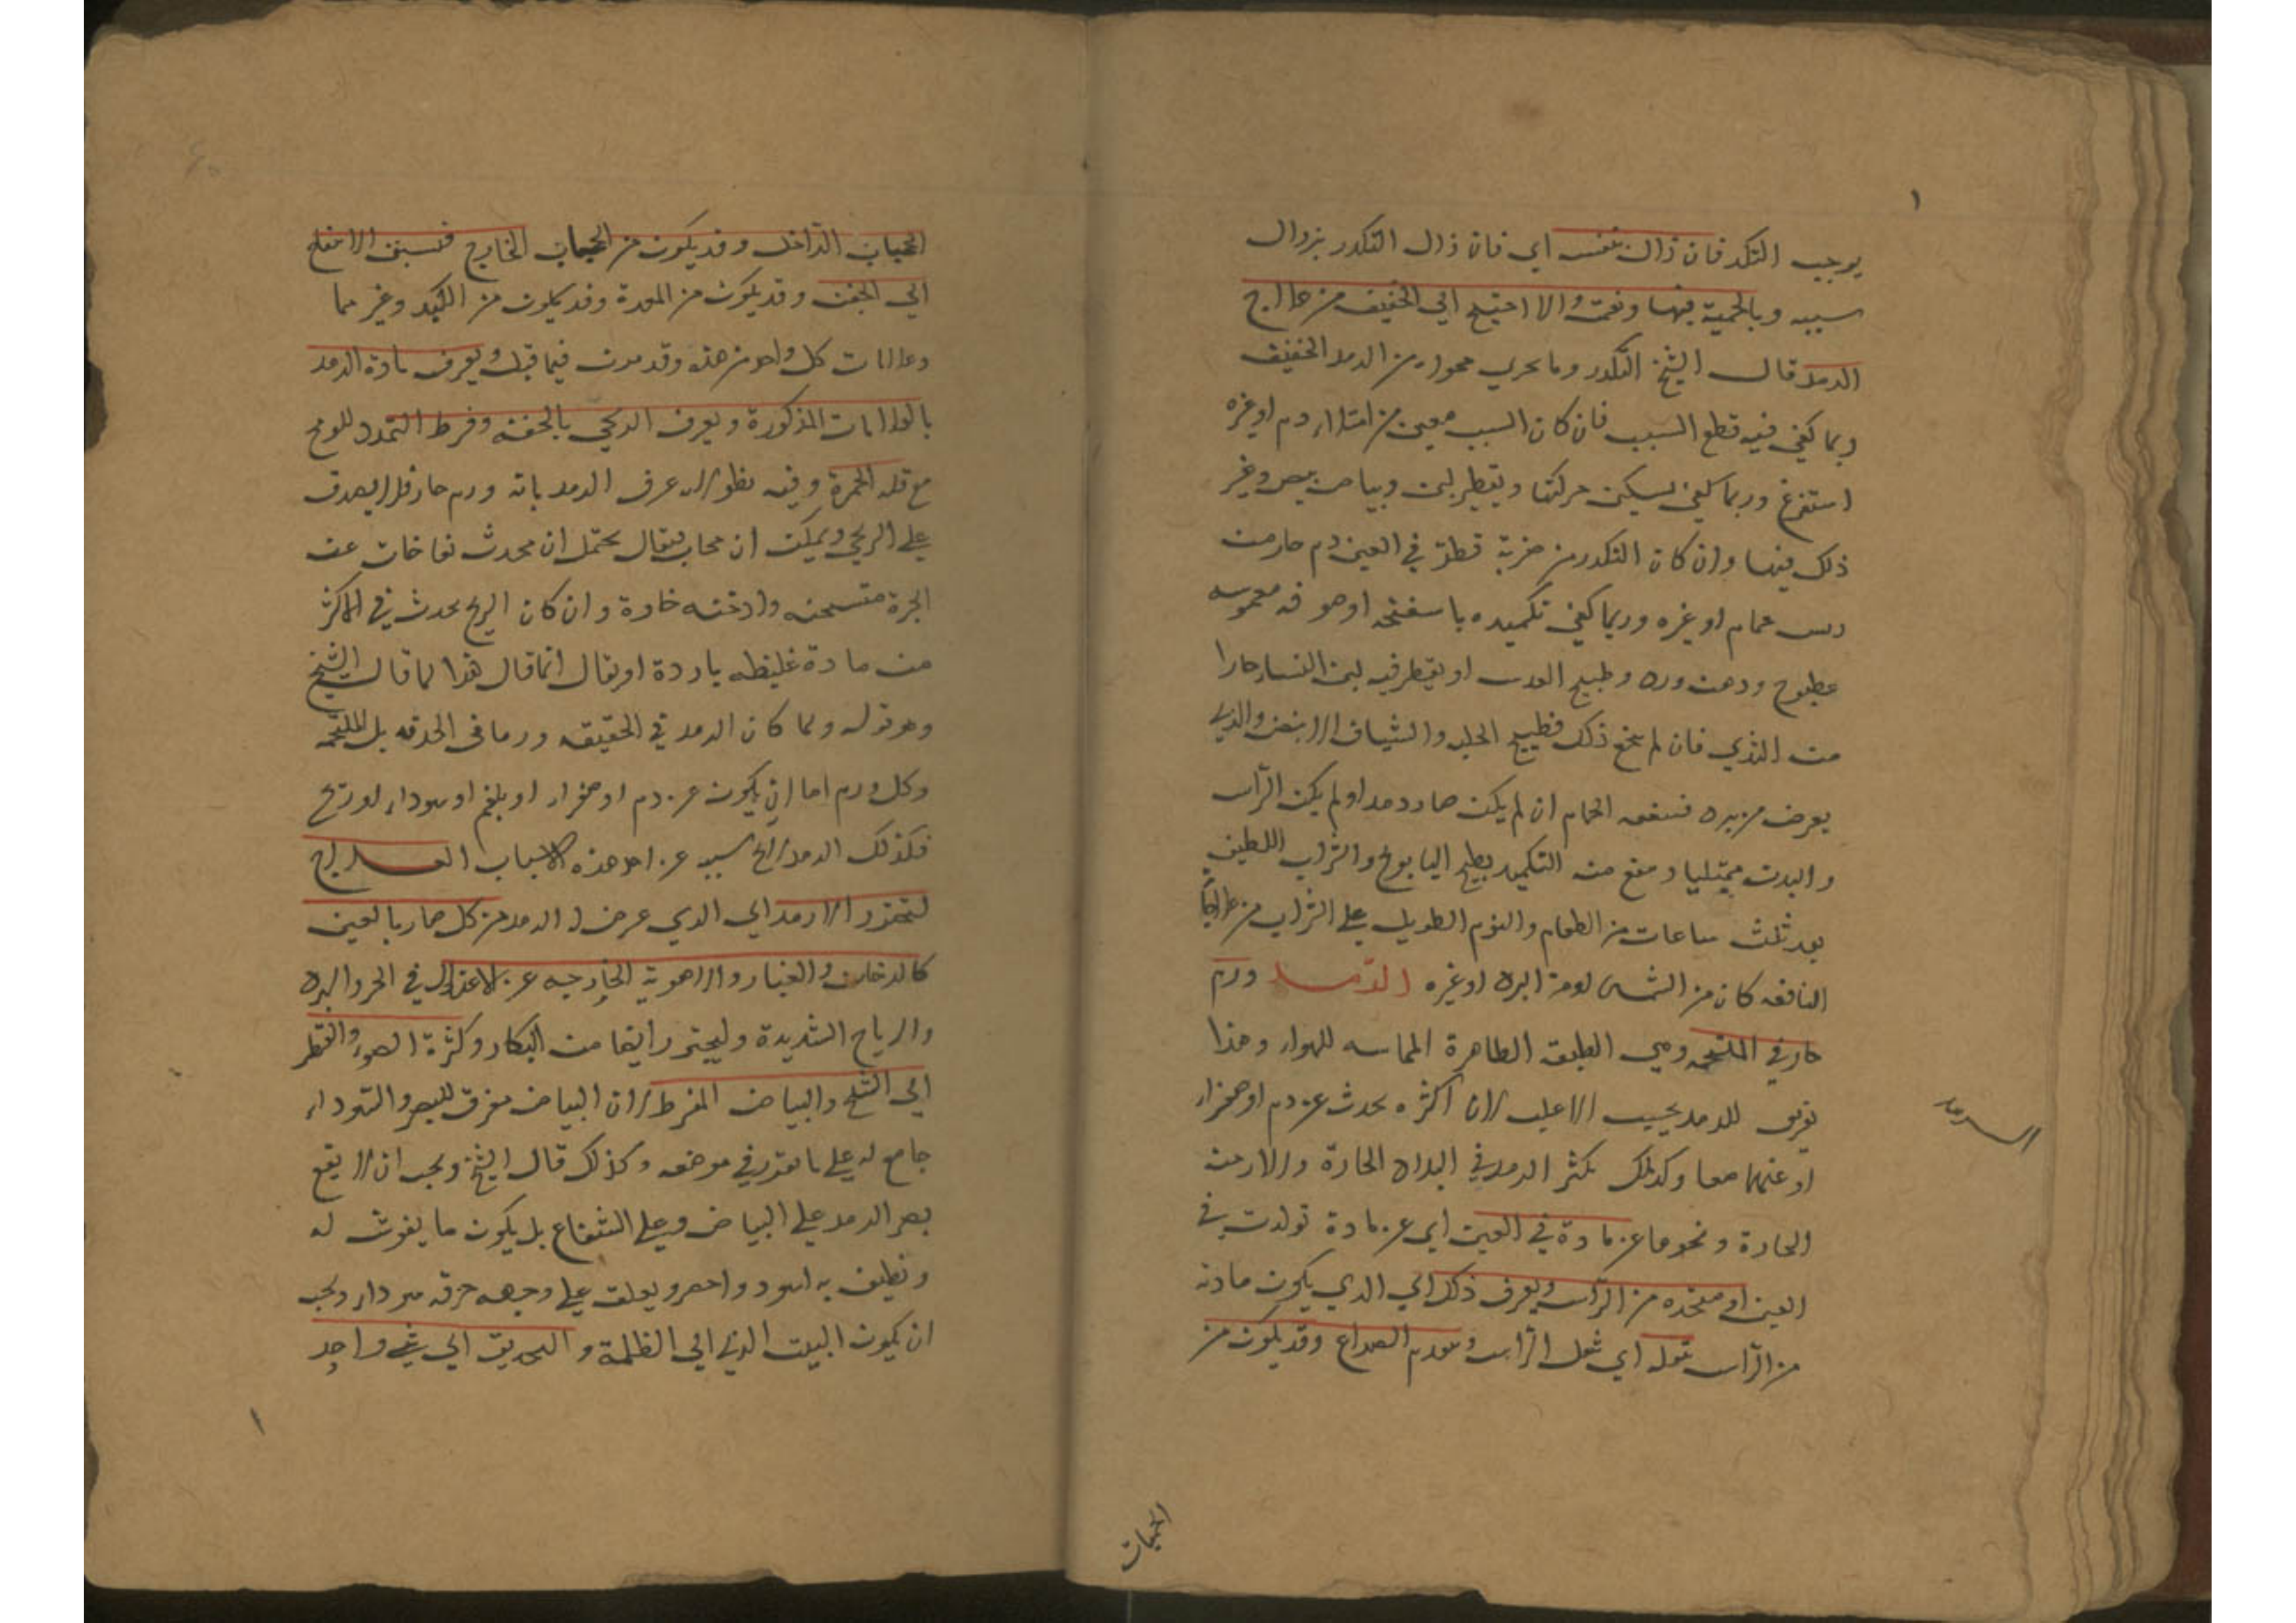 ١
يوجب التكدر فان زال بنفسه اي فان زال التكدر بزوال
سببه وبالحمية فبها ونعمت والا احتيج الى الخفيف من علاج
الرمد قال الشيخ التكدر وما يجري مجراه من الرمد الخفيف
ربما كفى فيه قطع السبب فان كان السبب معين من امتلاء دم او غيره
استفرغ وربما كفى تسكين حركتها وتقطير لبن وبياض بيض وغير
ذلك فيها وان كان التكدر من ضربة قطر في العين دم حار من
ريش حمام او غيره وربما كفى تكميده باسفنجة او صوفة مغموسة
بمطبوخ ودهن ورد وطبيخ العدس او يقطر فيه لبن النساء حارا
من الثدي فان لم ينجع ذلك فطبيخ الحلبه والشياف الابيض والذي
يعرض من برد فينفعه الحمام ان لم يكن صار رمدا ولم يكن الراس
والبدن ممتليا وينفع منه التكميد بطبيخ البابونج والشراب اللطيف
بعد ثلث ساعات من الطعام والنوم الطويل على الشراب من علاجاته
النافعه كان من الشمس او من البرد او غيره الرمد ورم
حار في الملتحمه وهي الطبقه الظاهرة المماسه للهواء وهذا
تعريف للرمد بحسب الاغلب لان اكثره يحدث عن دم او صفراء
او عنهما معا وكذلك يكثر الرمد في البلاد الحارة والازمنه
الرمد
الحارة ونحوها عن مادة في العين اي عن مادة تولدت في
العين او منحدره من الراس ويعرف ذلك اي الذي يكون مادته
من الراس بثقله اي ثقل الراس وتقدم الصداع وقد يكون من
الحجاب
الحجاب الداخل وقد يكون من الحجاب الخارج فيسبق الانتفاخ
الى الجفن وقد يكون من المعدة وقد يكون من الكبد وغيرهما
وعلامات كل واحد من هذه وقد مرت فيما قبل ويعرف مادة الرمد
بالعلامات المذكورة ويعرف الريحي بالخفة وفرط التمدد للورم
مع قلة الحمرة وفيه نظر لانه عرف الرمد بانه ورم حار فلا يصدق
على الريحي ويمكن ان يجاب فيقال يحتمل ان يحدث نفاخات عن
ابخرة متسخنه وادخنه حادة وان كان الريح يحدث في الاكثر
من مادة غليظه باردة او يقال انما قال هذا لما قال الشيخ
وهو قوله ولما كان الرمد في الحقيقه ورما في الحدقه بل الملتحمه
وكل ورم اما ان يكون عن دم او صفراء او بلغم او سوداء او ريح
فكذلك الرمد لا يخ سببه عن احد هذه الاسباب العلاج
ليحترز الارمد اي الذي عرض له الرمد من كل ضار بالعين
كالدخان والغبار والاهوية الخارجه عن الاعتدال في الحر والبرد
والرياح الشديدة وليحترز ايضا من البكاء وكثرة الضوء والنظر
الى الثلج والبياض المفرط لان البياض مفرق للبصر والسواد
جامع له على ما تقرر في موضعه وكذلك قال الشيخ ويجب ان لا يقع
بصر الرمد على البياض وعلى الشعاع بل يكون ما يفرش له
ونطيف به اسود واخضر ويعلق على وجهه خرقه سوداء ويجب
ان يكون البيت الذي الى الظلمة والتحديق الى شي واحد
١